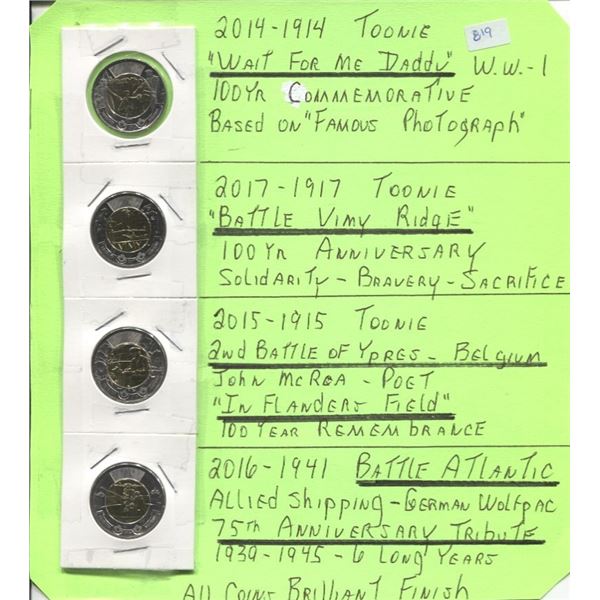 2014-1914 TOONIE
819
"WAIT FOR ME DADDY" W.W.-1
100YR COMMEMORATIVE
BASED ON "FAMOUS PHOTOGRAPH"
2017-1917 TOONIE
"BATTLE VIMY RIDGE"
100YR ANNIVERSARY
SOLIDARITY-BRAVERY-SACRIFICE
2015-1915 TOONIE
2ND BATTLE OF YPRES- BELGIUM
JOHN MCREA - POET
"IN FLANDERS FIELD"
100 YEAR REMEMBRANCE
2016-1941 BATTLE ATLANTIC
ALLIED SHIPPING-GERMAN WOLFPAC
75TH ANNIVERSARY TRIBUTE
1939-1945-6 LONG YEARS
All COINS BRILLIANT FINISH